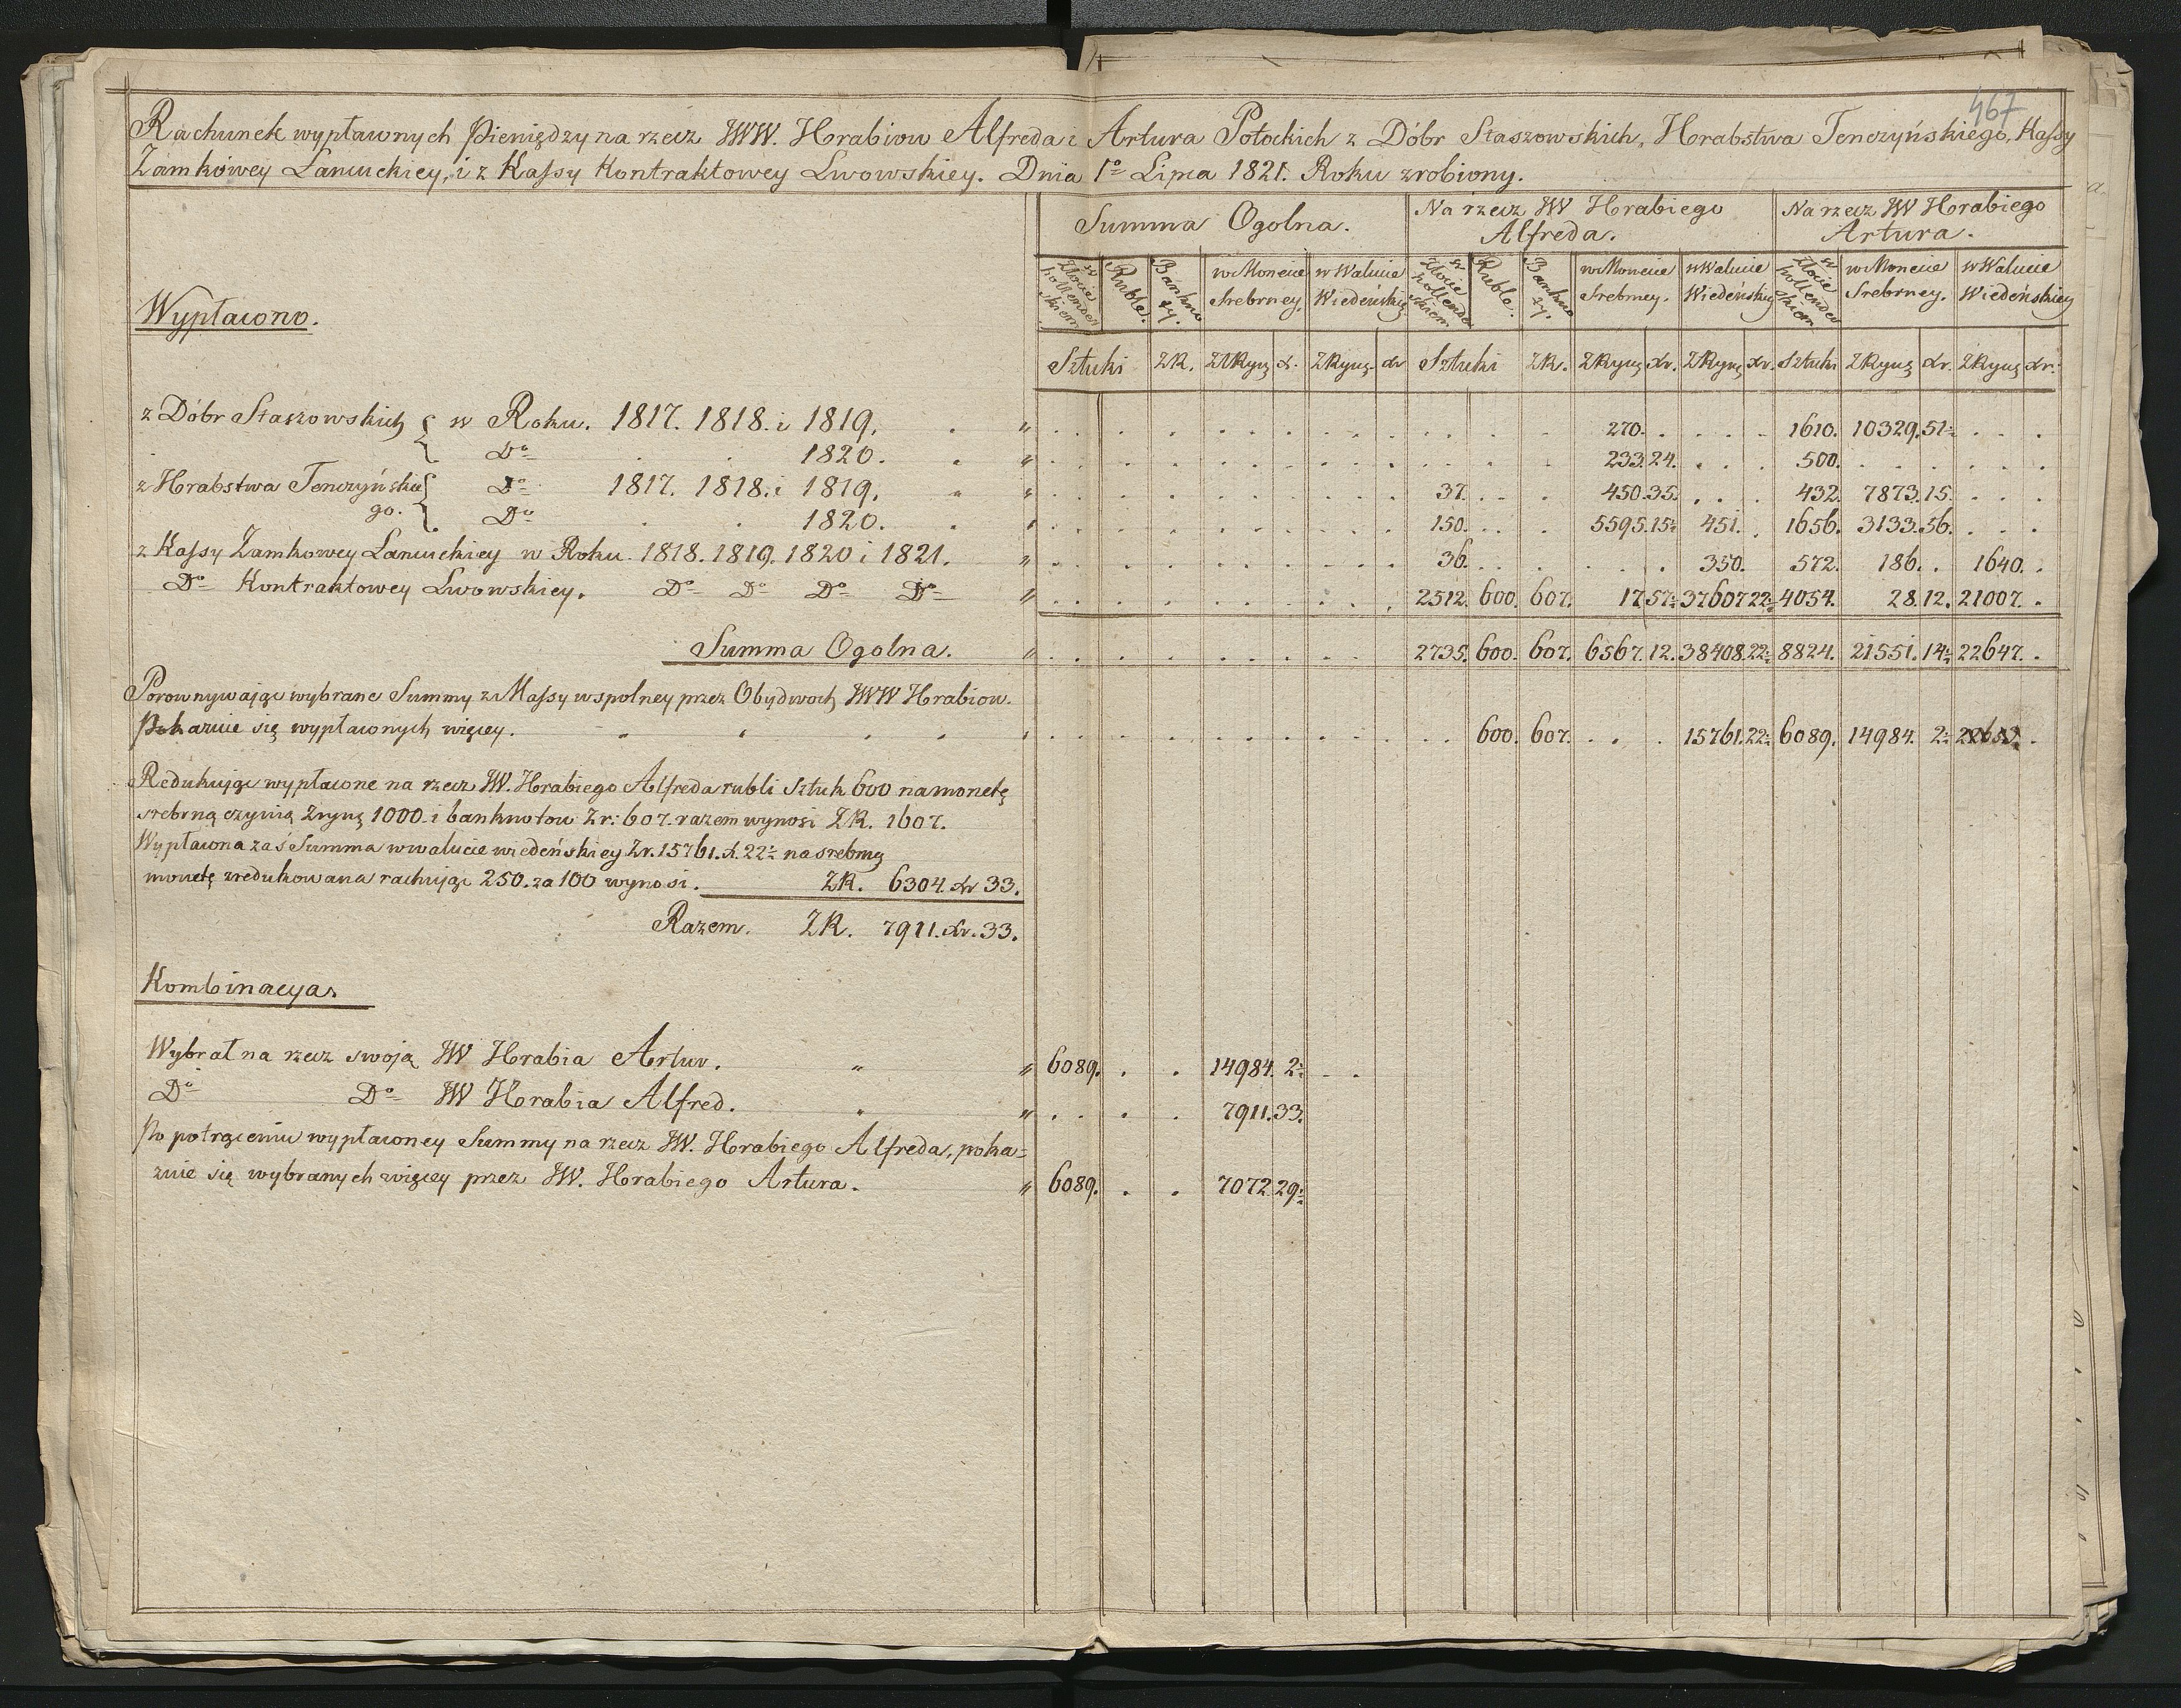 467
Rachunek wypłaconych Pieniędzy na rzecz JWW. Hrabiow Alfreda i Artura Potockich z Dóbr Staszowskich, Hrabstwa Tenczyńskiego, Kassy
Zamkowey Łancuckiey, i z Kassy Kontraktowey Lwowskiey. Dnia 1º Lipca 1821. Roku zrobiony.
Summa Ogolna. Na rzecz JW Hrabiego Alfreda. Na rzecz JW Hrabiego Artura.
Wypłacono.
w Złocie hollenderskiem Ruble. Banknoty. w Monecie Srebrney. w Walucie Wiedeńskiey w Złocie hollenderskiem Ruble. Banknoty. w Monecie Srebrney. w Walucie Wiedeńskiey w Złocie hollenderskiem w Monecie Srebrney. w Walucie Wiedeńskiey
Sztuki ZR. ZRyng xr. ZRyng xr Sztuki ZR. ZRyng xr. ZRyng xr. Sztuki ZRyng xr. ZRyng xr.
z Dóbr Staszowskich { w Roku. 1817. 1818. i 1819. " 270. 1610. 10329. 51½
Dº 1820. " 233. 24. 500.
z Hrabstwa Tenczyńskie { Dº 1817. 1818. i 1819. " 37. 450. 35. 432. 7873. 15.
go. Dº 1820. 150. 5595. 15½ 451. 1656. 3133. 56.
z Kassy Zamkowey Łancuckiey w Roku. 1818. 1819. 1820 i 1821. " 36. 350. 572. 186. 1640.
Dº Kontraktowey Lwowskiey. Dº Dº Dº Dº " 2512. 600. 607. 17. 57½ 37607 22½ 4054. 28. 12. 21007.
Summa Ogolna. " 2735. 600. 607. 6567. 12. 38408. 22½ 8824. 21551. 14½ 22647.
Porownywając wybrane Summy z Massy wspolney przez Obydwoch JWW Hrabiow.
Pokazuie się wypłaconych więcey. 600. 607. 15761. 22½ 6089. 14984. 2½
Redukując wypłacone na rzecz JW. Hrabiego Alfreda rubli Sztuk 600 na monetę
srebrną czynią Zryng 1000. i banknotow Zr: 607. razem wynosi ZR. 1607.
Wypłacona zaś Summa w walucie wiedeńskiey Zr. 15761. x. 22½ na srebrną
monetę zredukowana rachując 250. za 100 wynosi. ZR. 6304. xr 33.
Razem. ZR. 7911. xr. 33.
Kombinacya.
Wybrał na rzecz swoją JW Hrabia Artur. " " 6089. 14984. 2½
Dº Dº JW Hrabia Alfred. " " 7911. 33.
Po potrąceniu wypłaconey Summy na rzecz JW. Hrabiego Alfreda, poka=
zuie się wybranych więcey przez JW. Hrabiego Artura. " 6089. 7072. 29½